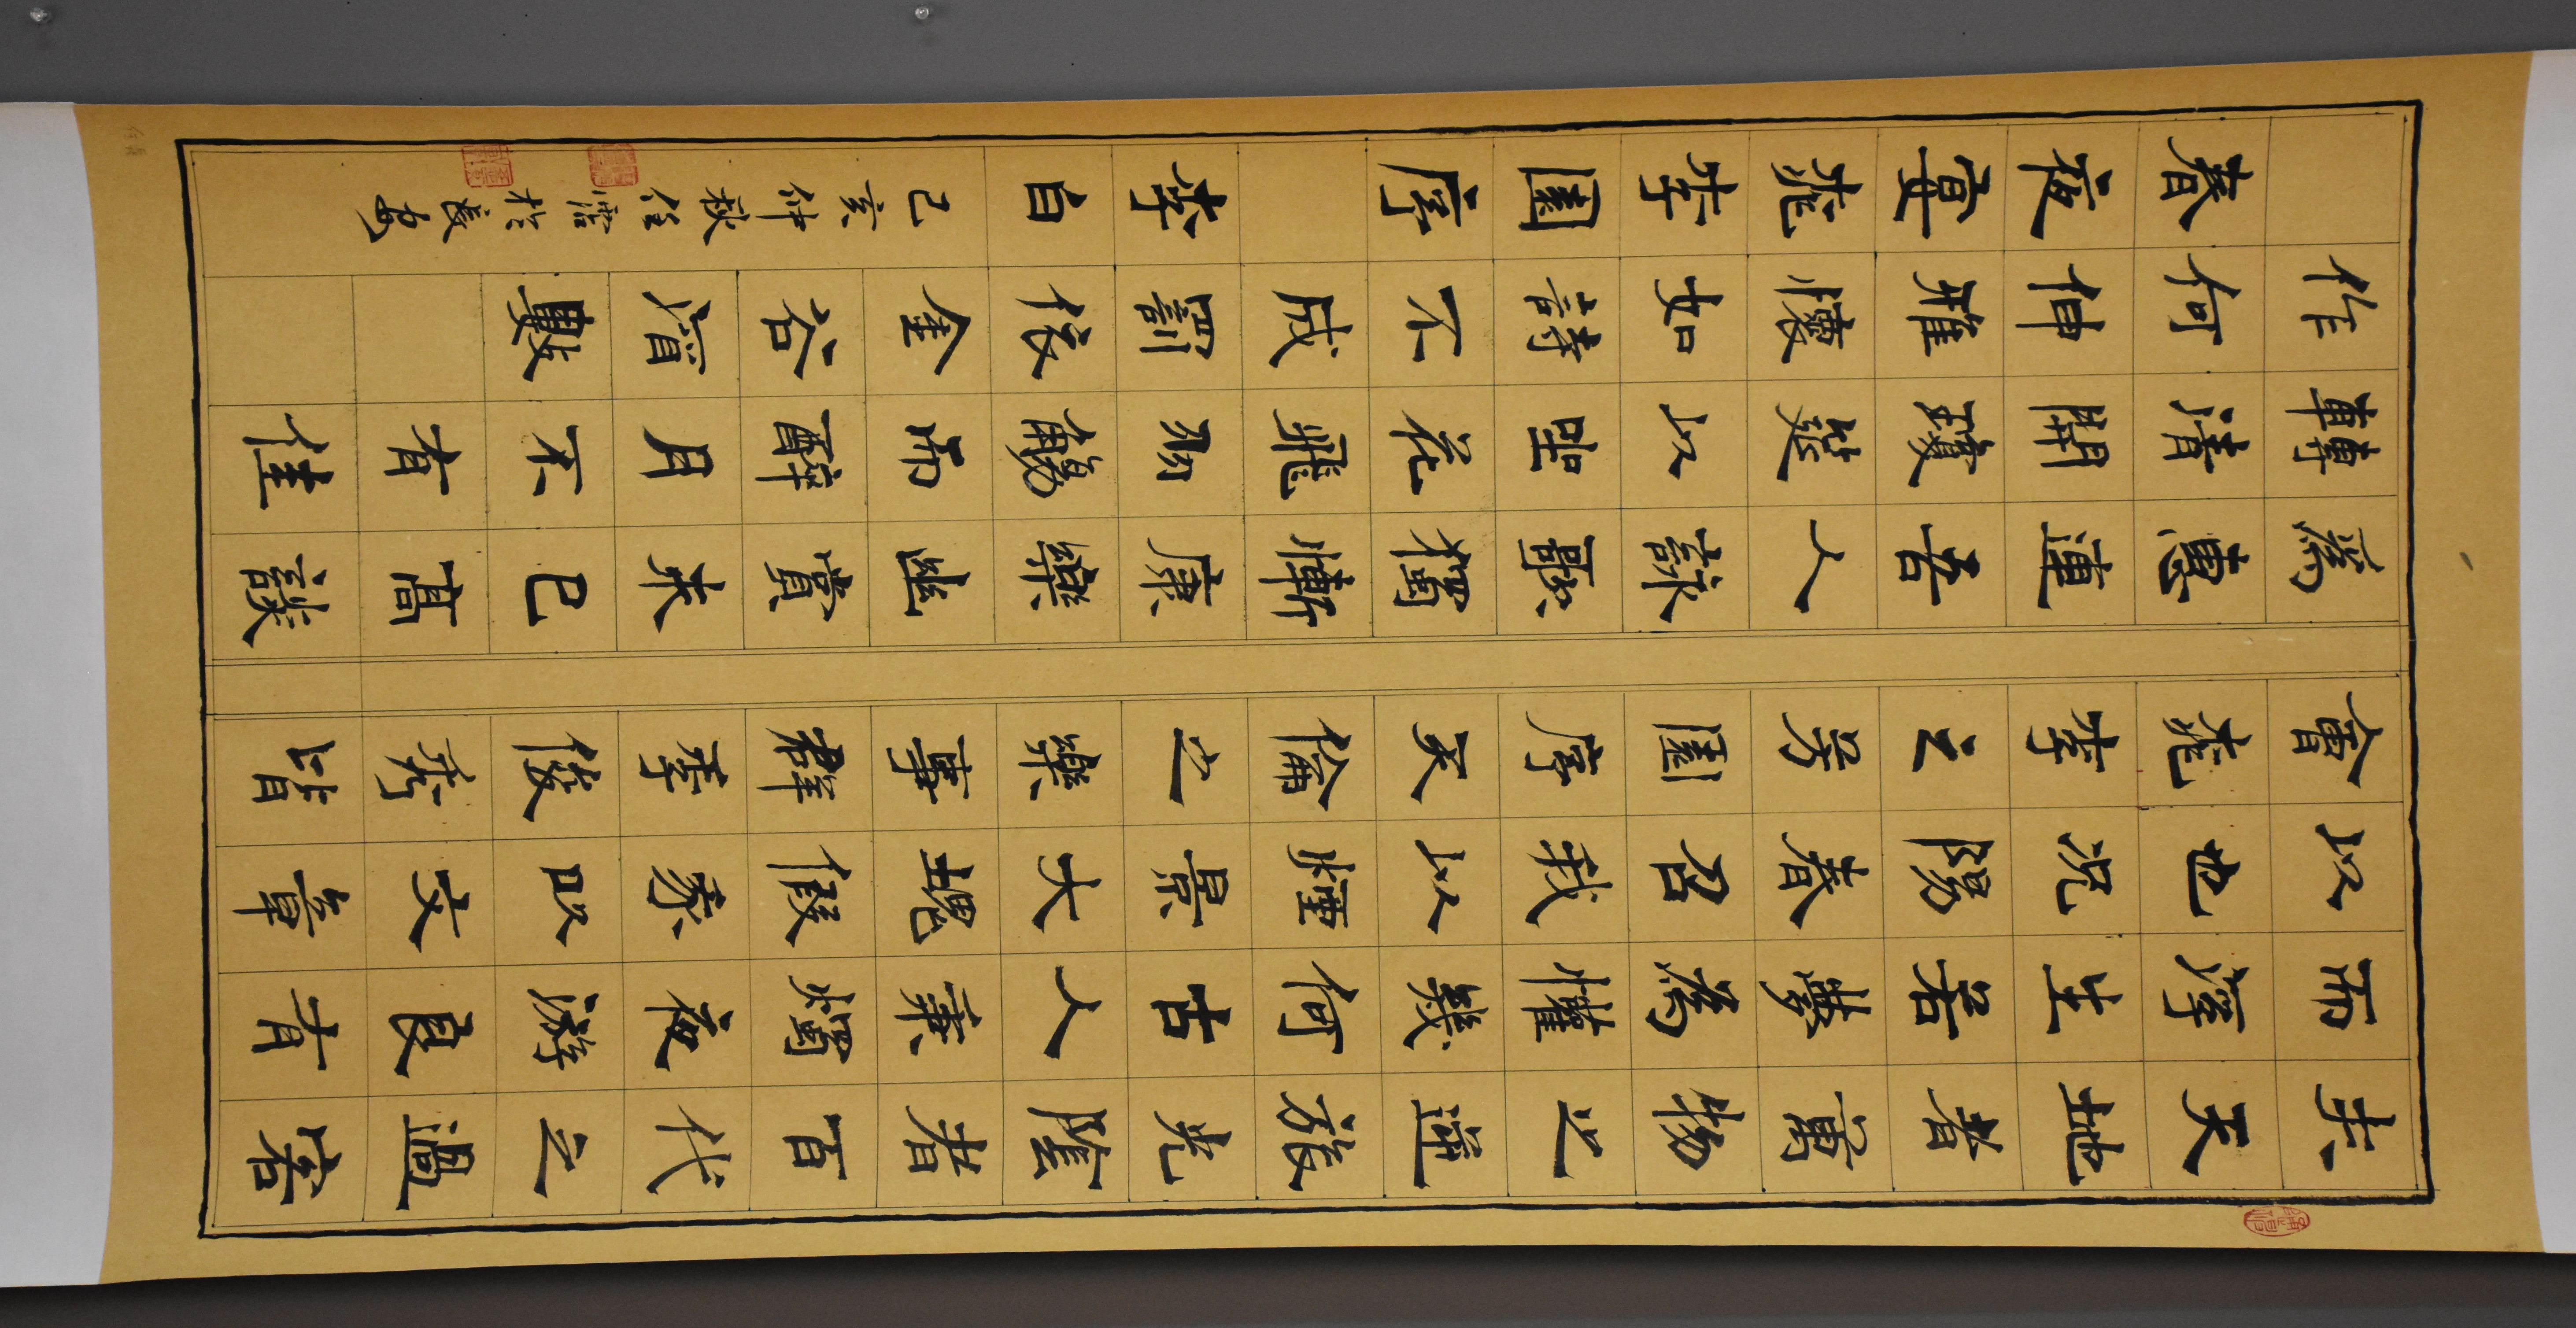 夫天地者萬物之逆旅光陰者百代之過客
而浮生若夢為懽幾何古人秉燭夜遊良有
以也況陽春召我以煙景大塊假我以文章
會桃李之芳園序天倫之樂事羣季俊秀皆
為惠連吾人詠歌獨慚康樂幽賞未已高談
轉清開瓊筵以坐花飛羽觴而醉月不有佳
作何伸雅懷如詩不成罰依金谷酒數
春夜宴桃李園序 李白 己亥仲秋